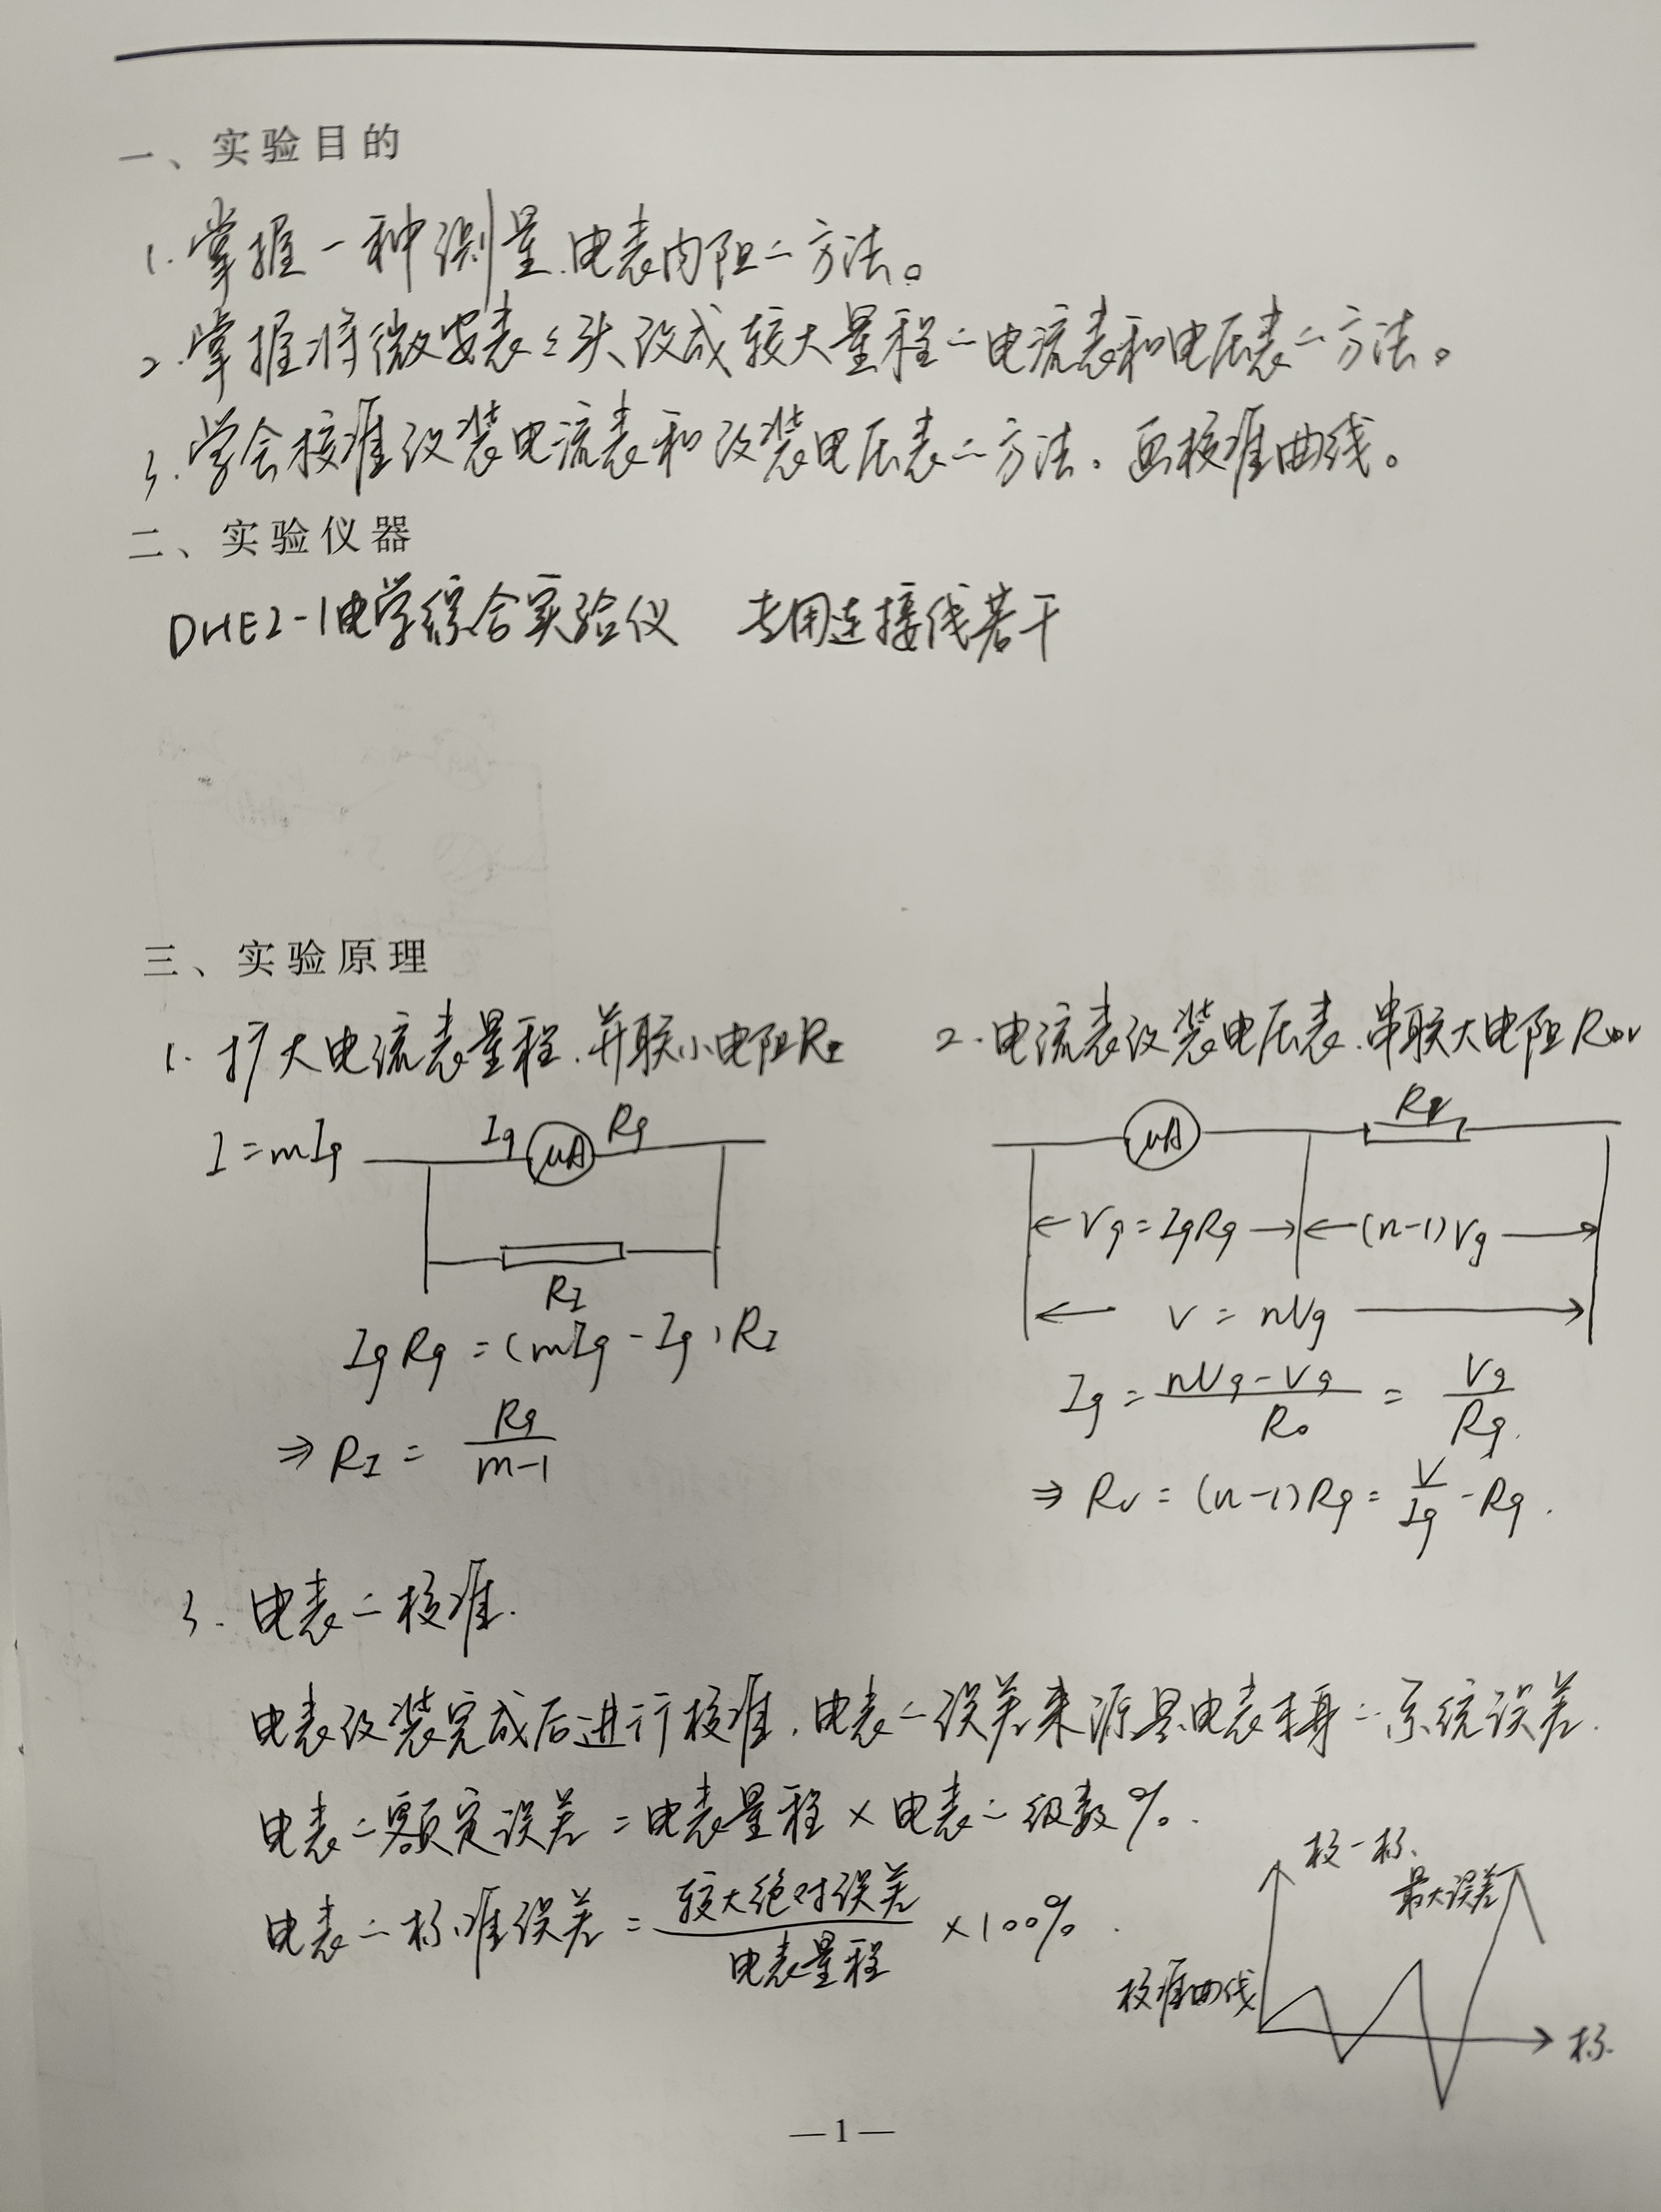 一、实验目的
1.掌握一种测量电表内阻二方法。
2.掌握将微安表表头改成较大量程二电流表和电压表二方法。
3.学会校准改装电流表和改装电压表二方法。画校准曲线。
二、实验仪器
DHE2-1电学综合实验仪 专用连接线若干
三、实验原理
1. 扩大电流表量程.并联小电阻RI
I=mIg Ig μA Rg
RI
IgRg=(mIg-Ig)RI
⇒RI= Rg/(m-1)
2.电流表改装电压表.串联大电阻
μA RV
Vg=IgRg (n-1)Vg
V=nVg
Ig= (nVg-Vg)/R0 = Vg/Rg.
⇒RV=(n-1)Rg= V/Ig -Rg.
3. 电表二校准.
电表改装完成后进行校准.电表二误差来源是电表本身二系统误差.
电表二额定误差=电表量程×电表二级数%.
电表二标准误差= 较大绝对误差/电表量程 ×100%.
校-标
最大误差
校准曲线
标
—1—